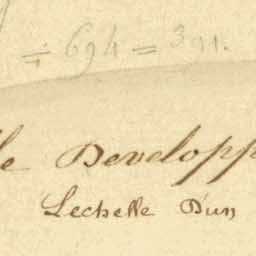 ÷ 694 = 391.
le Developp
Lechelle D'un